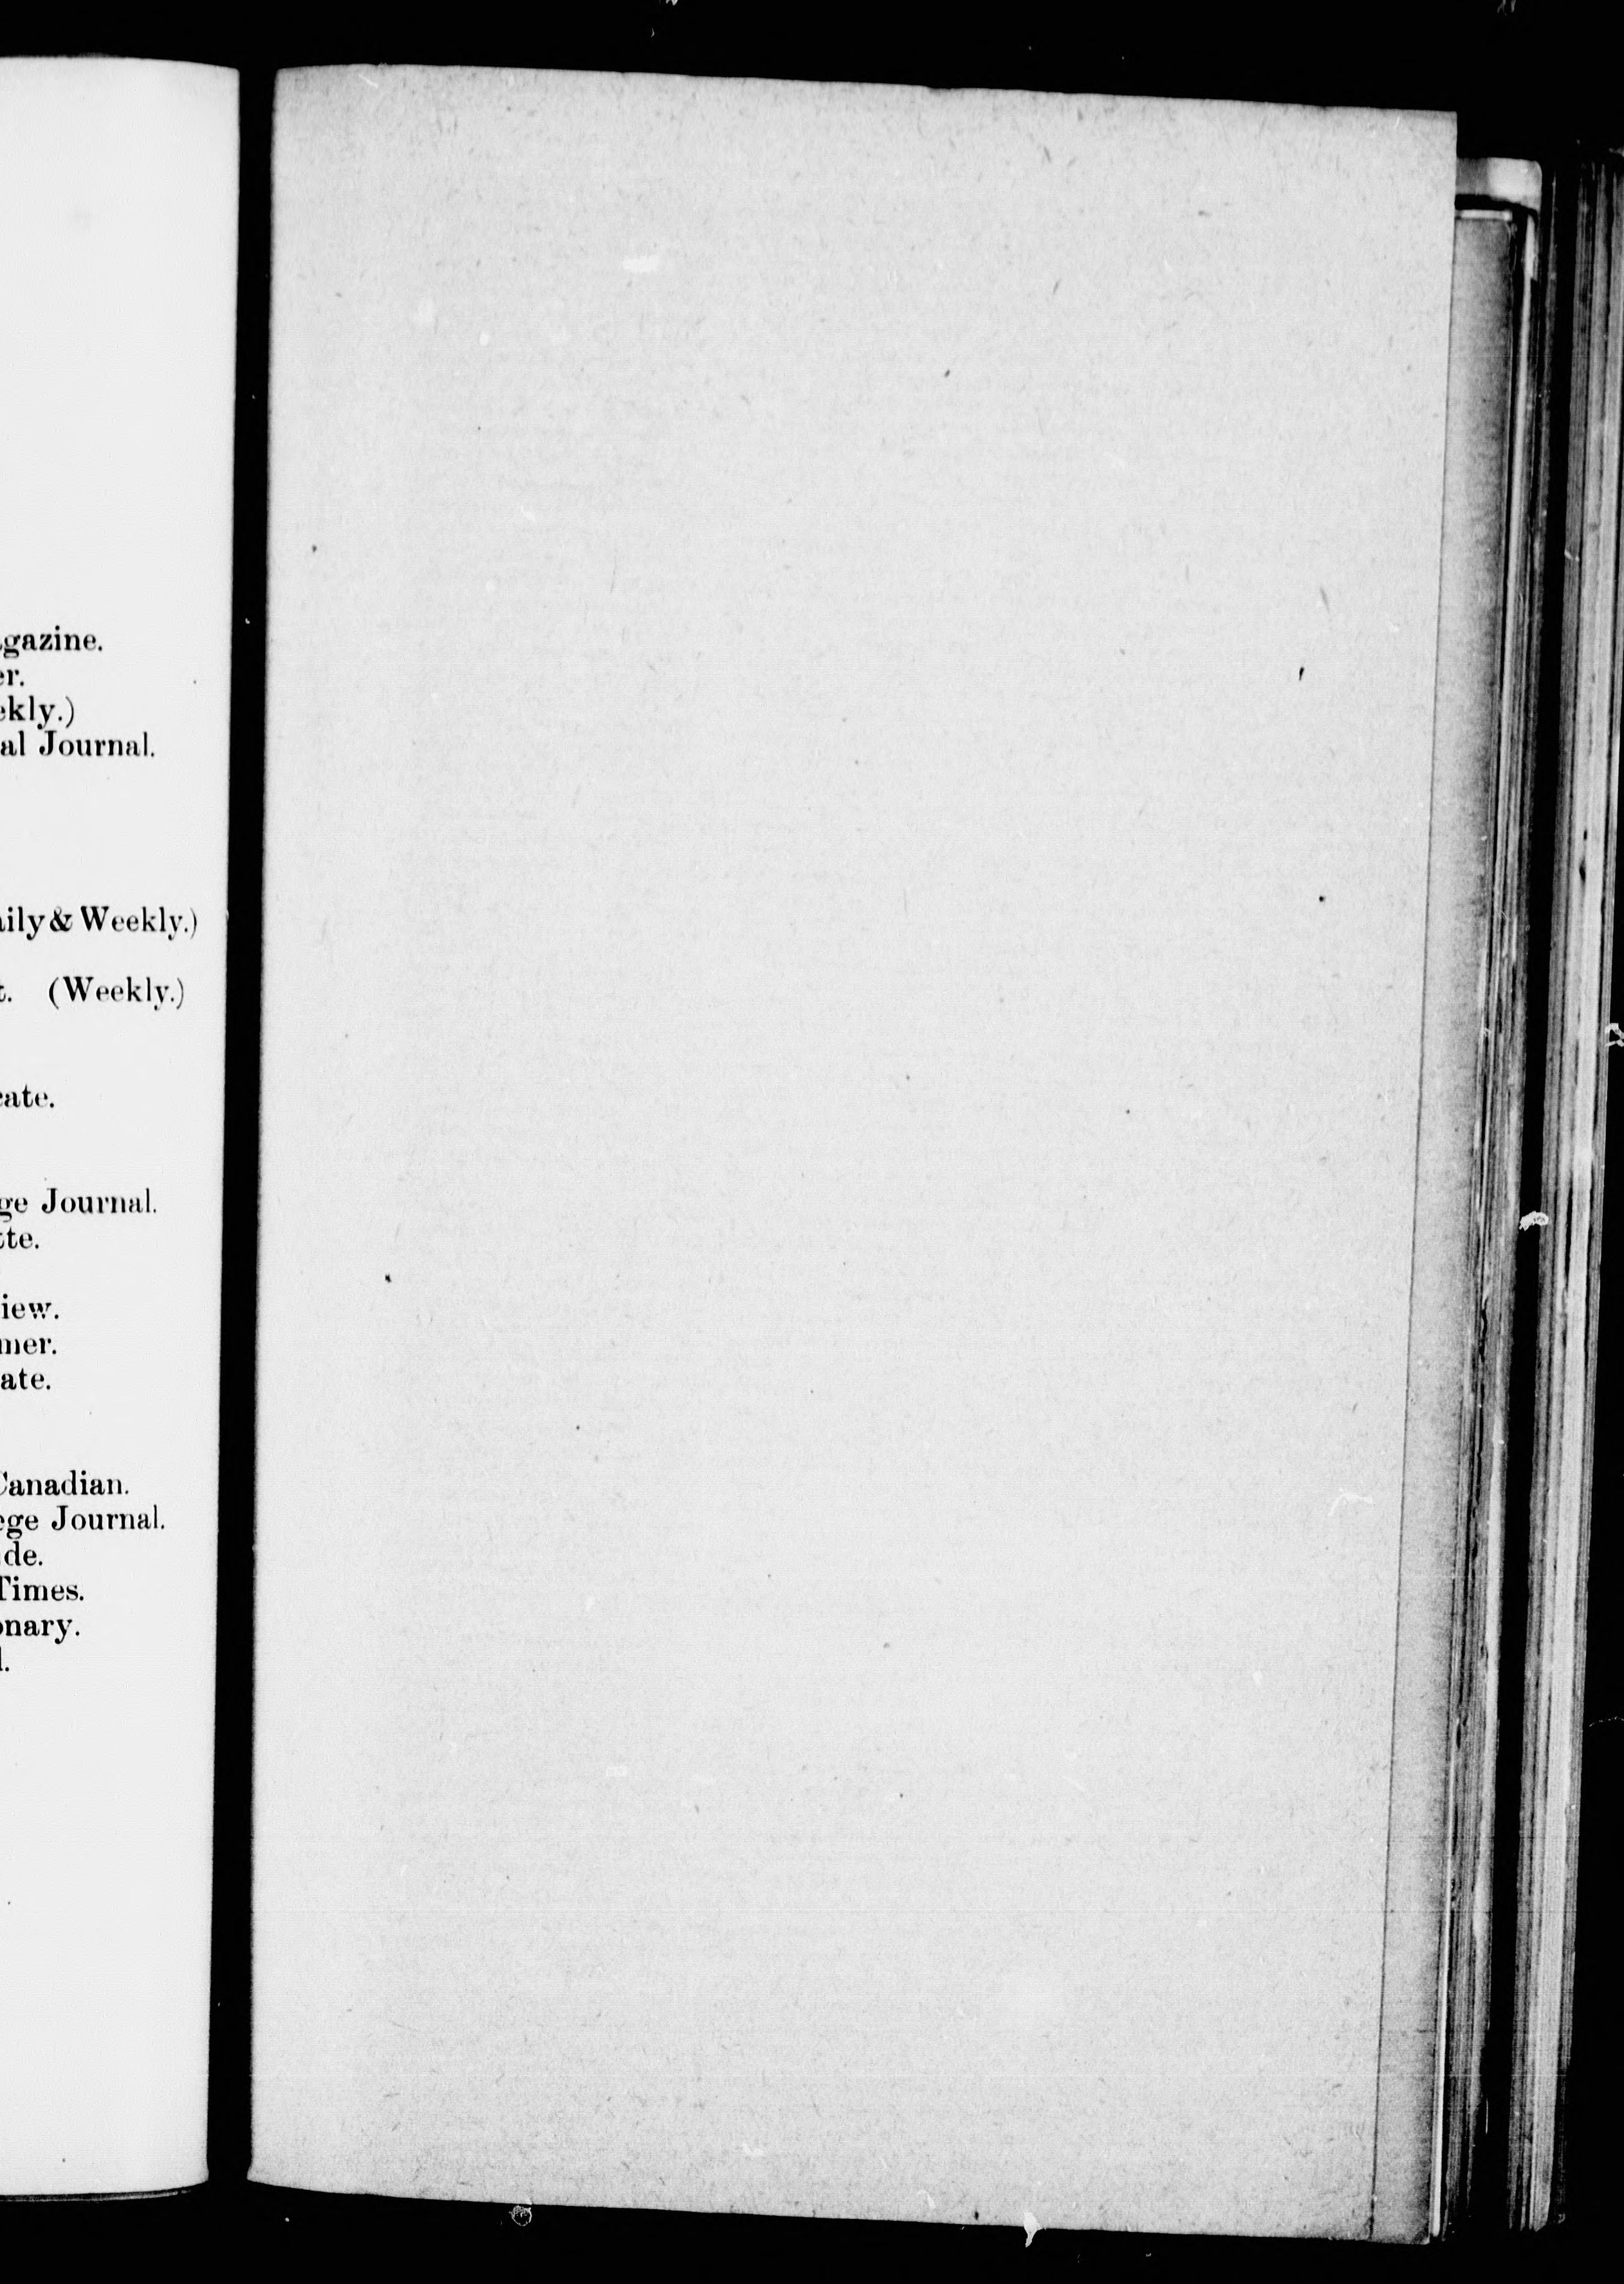 gazine.
er.
ekly.)
al Journal.
aily & Weekly.)
t. (Weekly.)
cate.
ge Journal.
tte.
iew.
mer.
ate.
Canadian.
ege Journal.
de.
Times.
onary.
l.